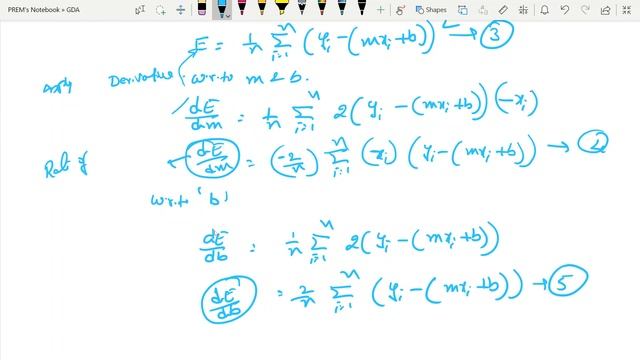 PREM's Notebook » GDA
Shapes
E = 1/n Σ_{i=1}^{n} (y_i - (mx_i + b))² → ③
Apply Derivative w.r.to m & b.
dE/dm = 1/n Σ_{i=1}^{n} 2(y_i - (mx_i + b))(-x_i)
dE/dm = (-2/n) Σ_{i=1}^{n} (x_i) (y_i - (mx_i + b)) → ④
w.r.to 'b'
dE/db = 1/n Σ_{i=1}^{n} 2(y_i - (mx_i + b))
dE/db = 2/n Σ_{i=1}^{n} (y_i - (mx_i + b)) → ⑤